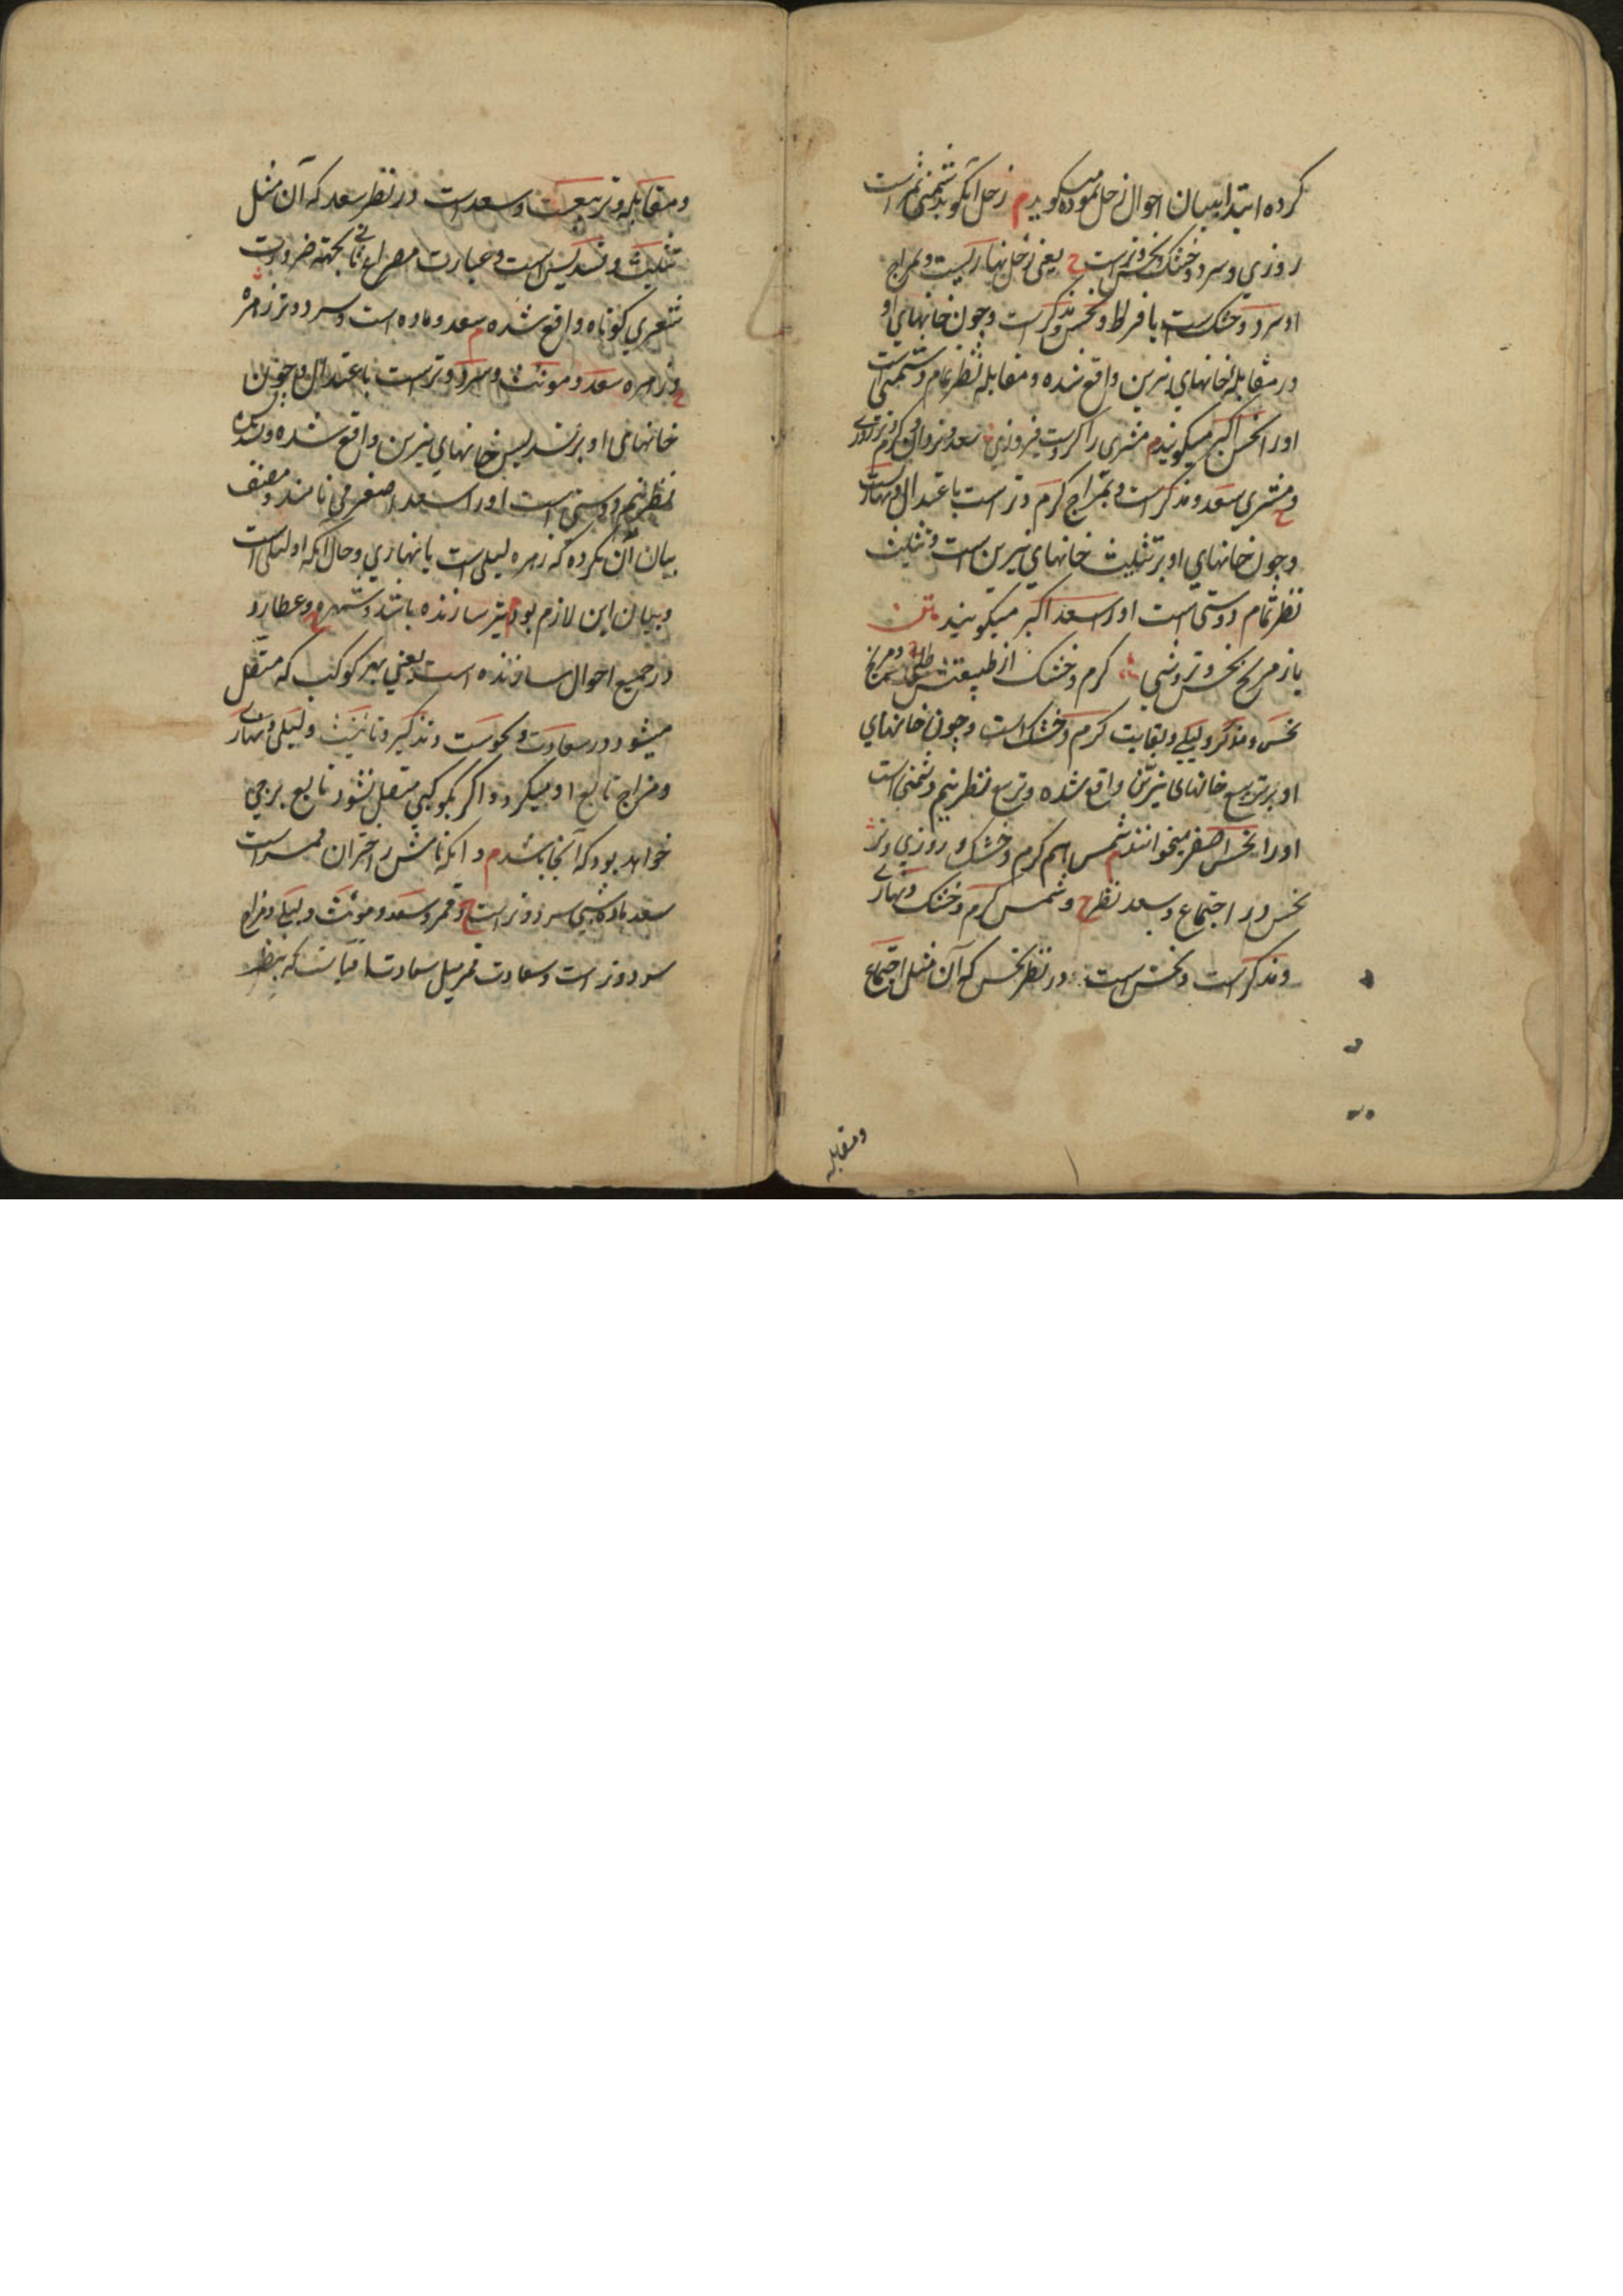 کرده ابتدا ببیان احوال زحل نموده میکوید م زحل آنکو بدشمنی ثمر است
روزی و سرد و خشک و نحس و نر است ح یعنی زحل نهاریست و بمزاج
او سرد و خشک است بافراط و نحس و مذکر است و چون خانهای او
در مقابله خانهای نیرین واقع شده و مقابله نظر تمام دشمنی است
او را نحس اکبر میکویند م مشتری راکرست فیروزی سعد و نر وان کرم و تر روزی
ح و مشتری سعد و مذکر است و بمزاج کرم و تر است باعتدال و نهاریست
و چون خانهای او بر تثلیث خانهای نیرین است و تثلیث
نظر تمام دوستی است او را سعد اکبر میکویند متن
باز مریخ نحس و نر و شبی کرم و خشک از طبیعتش طلبی ح و مریخ
نحس و مذکر و لیلی و بغایت کرم و خشک است و چون خانهای
او بر تربیع خانهای نیرین واقع شده و تربیع نظر نیم دشمنی است
او را نحس اصغر میخوانند م شمس هم کرم و خشک و روزی و نر
نحس در اجتماع و سعد نظر ح و شمس کرم و خشک و نهاری
و مذکر است و نحس است در نظر نحس که آن مثل اجتماع
و مقابله
و مقابله و تربیعست و سعد است در نظر سعد که آن مثل
تثلیث و تسدیس است و عبارت مصراع ثانی بجهة ضرورت
شعری کوتاه واقع شده م سعد و ماده است و سرد و تر زهره
ح و زهره سعد و مونث و سرد و تر است باعتدال و چون
خانهای او بر تسدیس خانهای نیرین واقع شده و تسدیس
نظر نیم دوستی است او را سعد اصغر می نامند و مصنف
بیان آن نکرده که زهره لیلی است یا نهاری و حال آنکه او لیلی است
و بیان این لازم بود م تیر سازنده باشد و شهره ح و عطارد
در جمیع احوال سازنده است یعنی بهر کوکب که متصل
میشود در سعادت و نحوست و تذکیر و تانیث و لیلی و نهاری
و مزاج تابع او میکردد و اکر بکوکبی متصل نشود تابع برجی
خواهد بود که آنجا باشد م و انکه نامش ز اختران قمر است
سعد ماده شبی سرد و تر است ح و قمر و سعد و مونث و لیلی و مزاج
سرد و تر است و سعادت قمر مثل سعادت آفتابست که بنظر